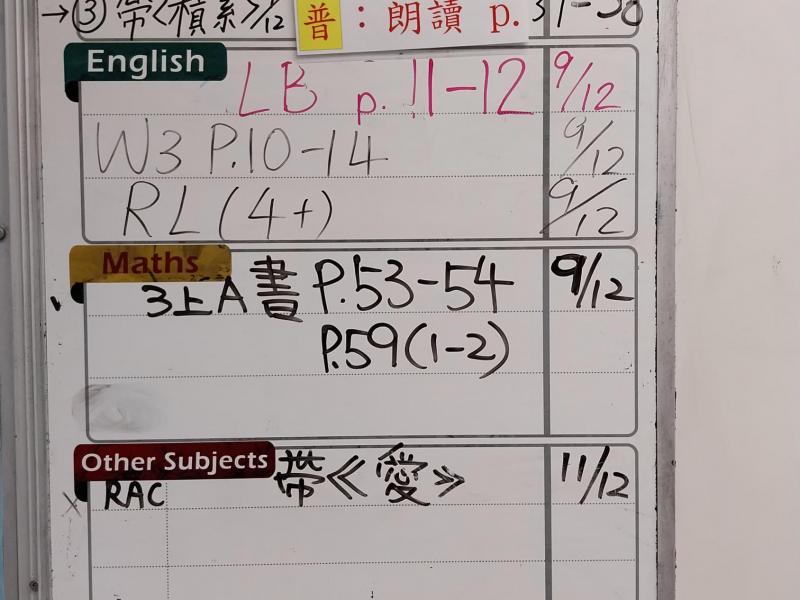 →③ 帶<積累> /12
普：朗讀 p. 37-38
English
LB p.11-12 9/12
W3 P.10-14 9/12
RL(4+) 9/12
Maths
3上A書 P.53-54 9/12
P.59(1-2)
Other Subjects
RAC 帶《愛》 11/12